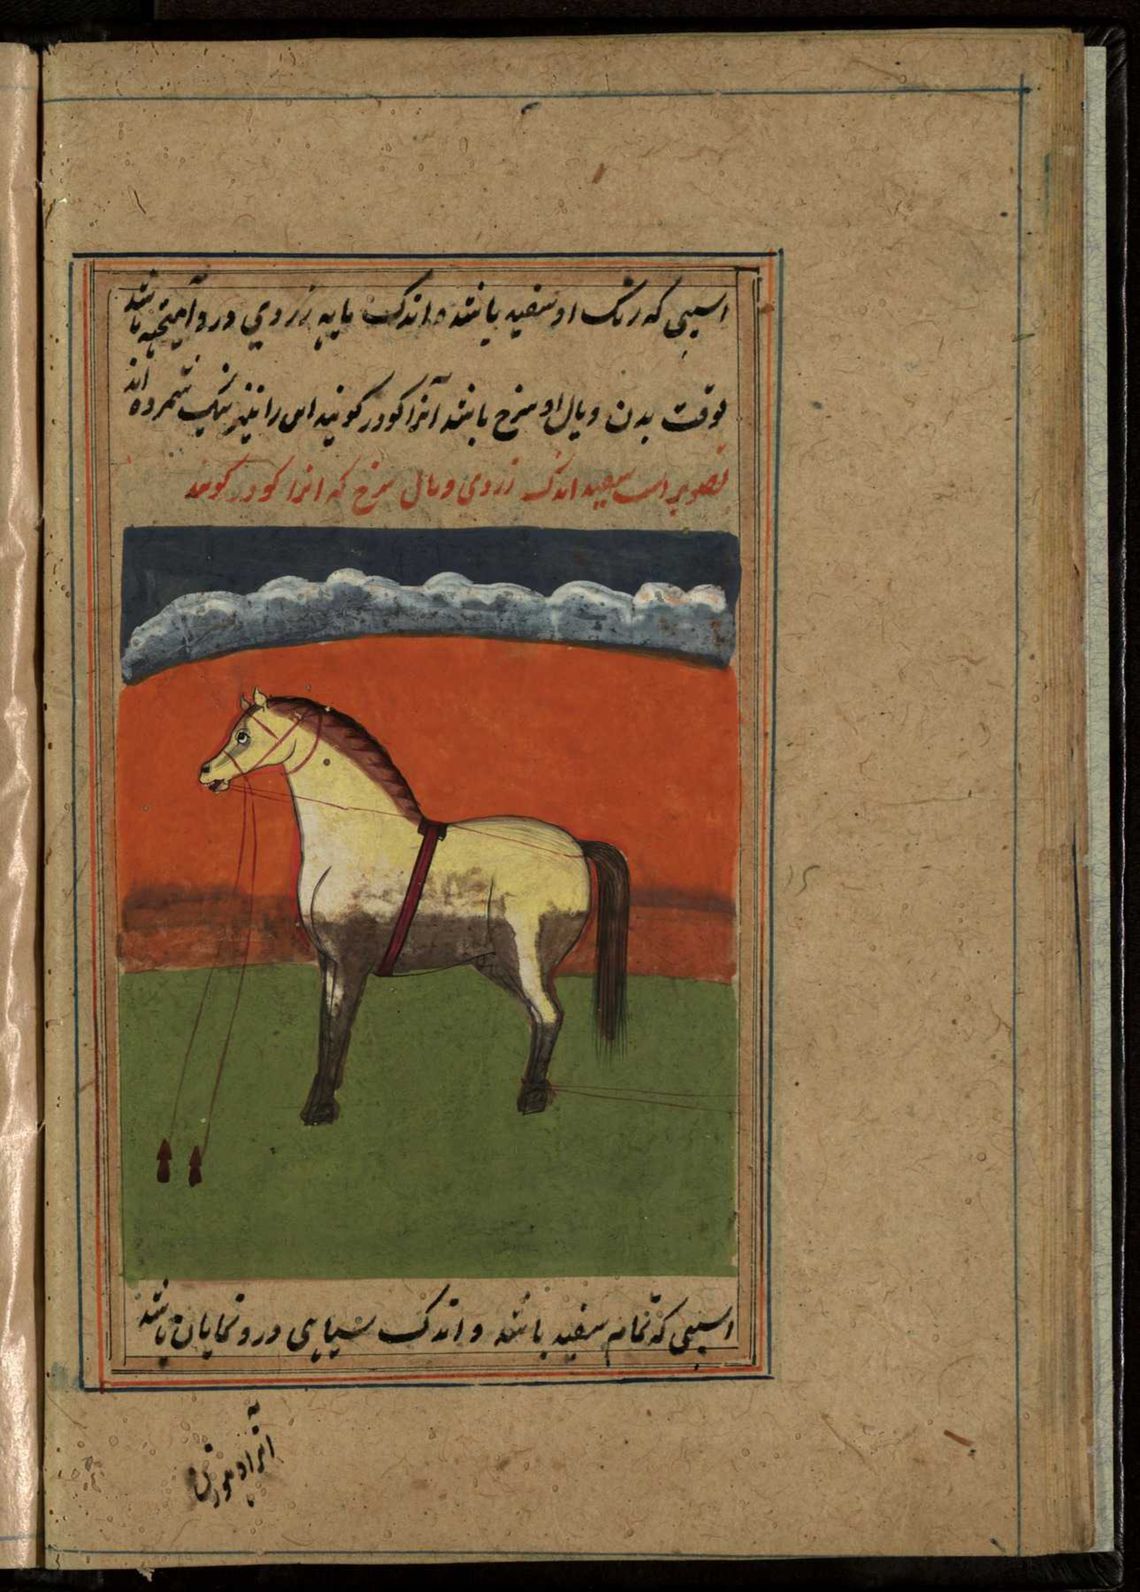 اسپی که رنگ او سفید باشد و اندک مایه زردی درو آمیخته باشد
وقت بدن و یال او سرخ باشد آنرا کودر گویند این را نیز نیک شمرده اند
تصویر اسپ سفید اندک زردی و یال سرخ که انرا کودر گویند
اسپی که تمام سفید باشد و اندک سیاهی درو نمایان باشد
انرا